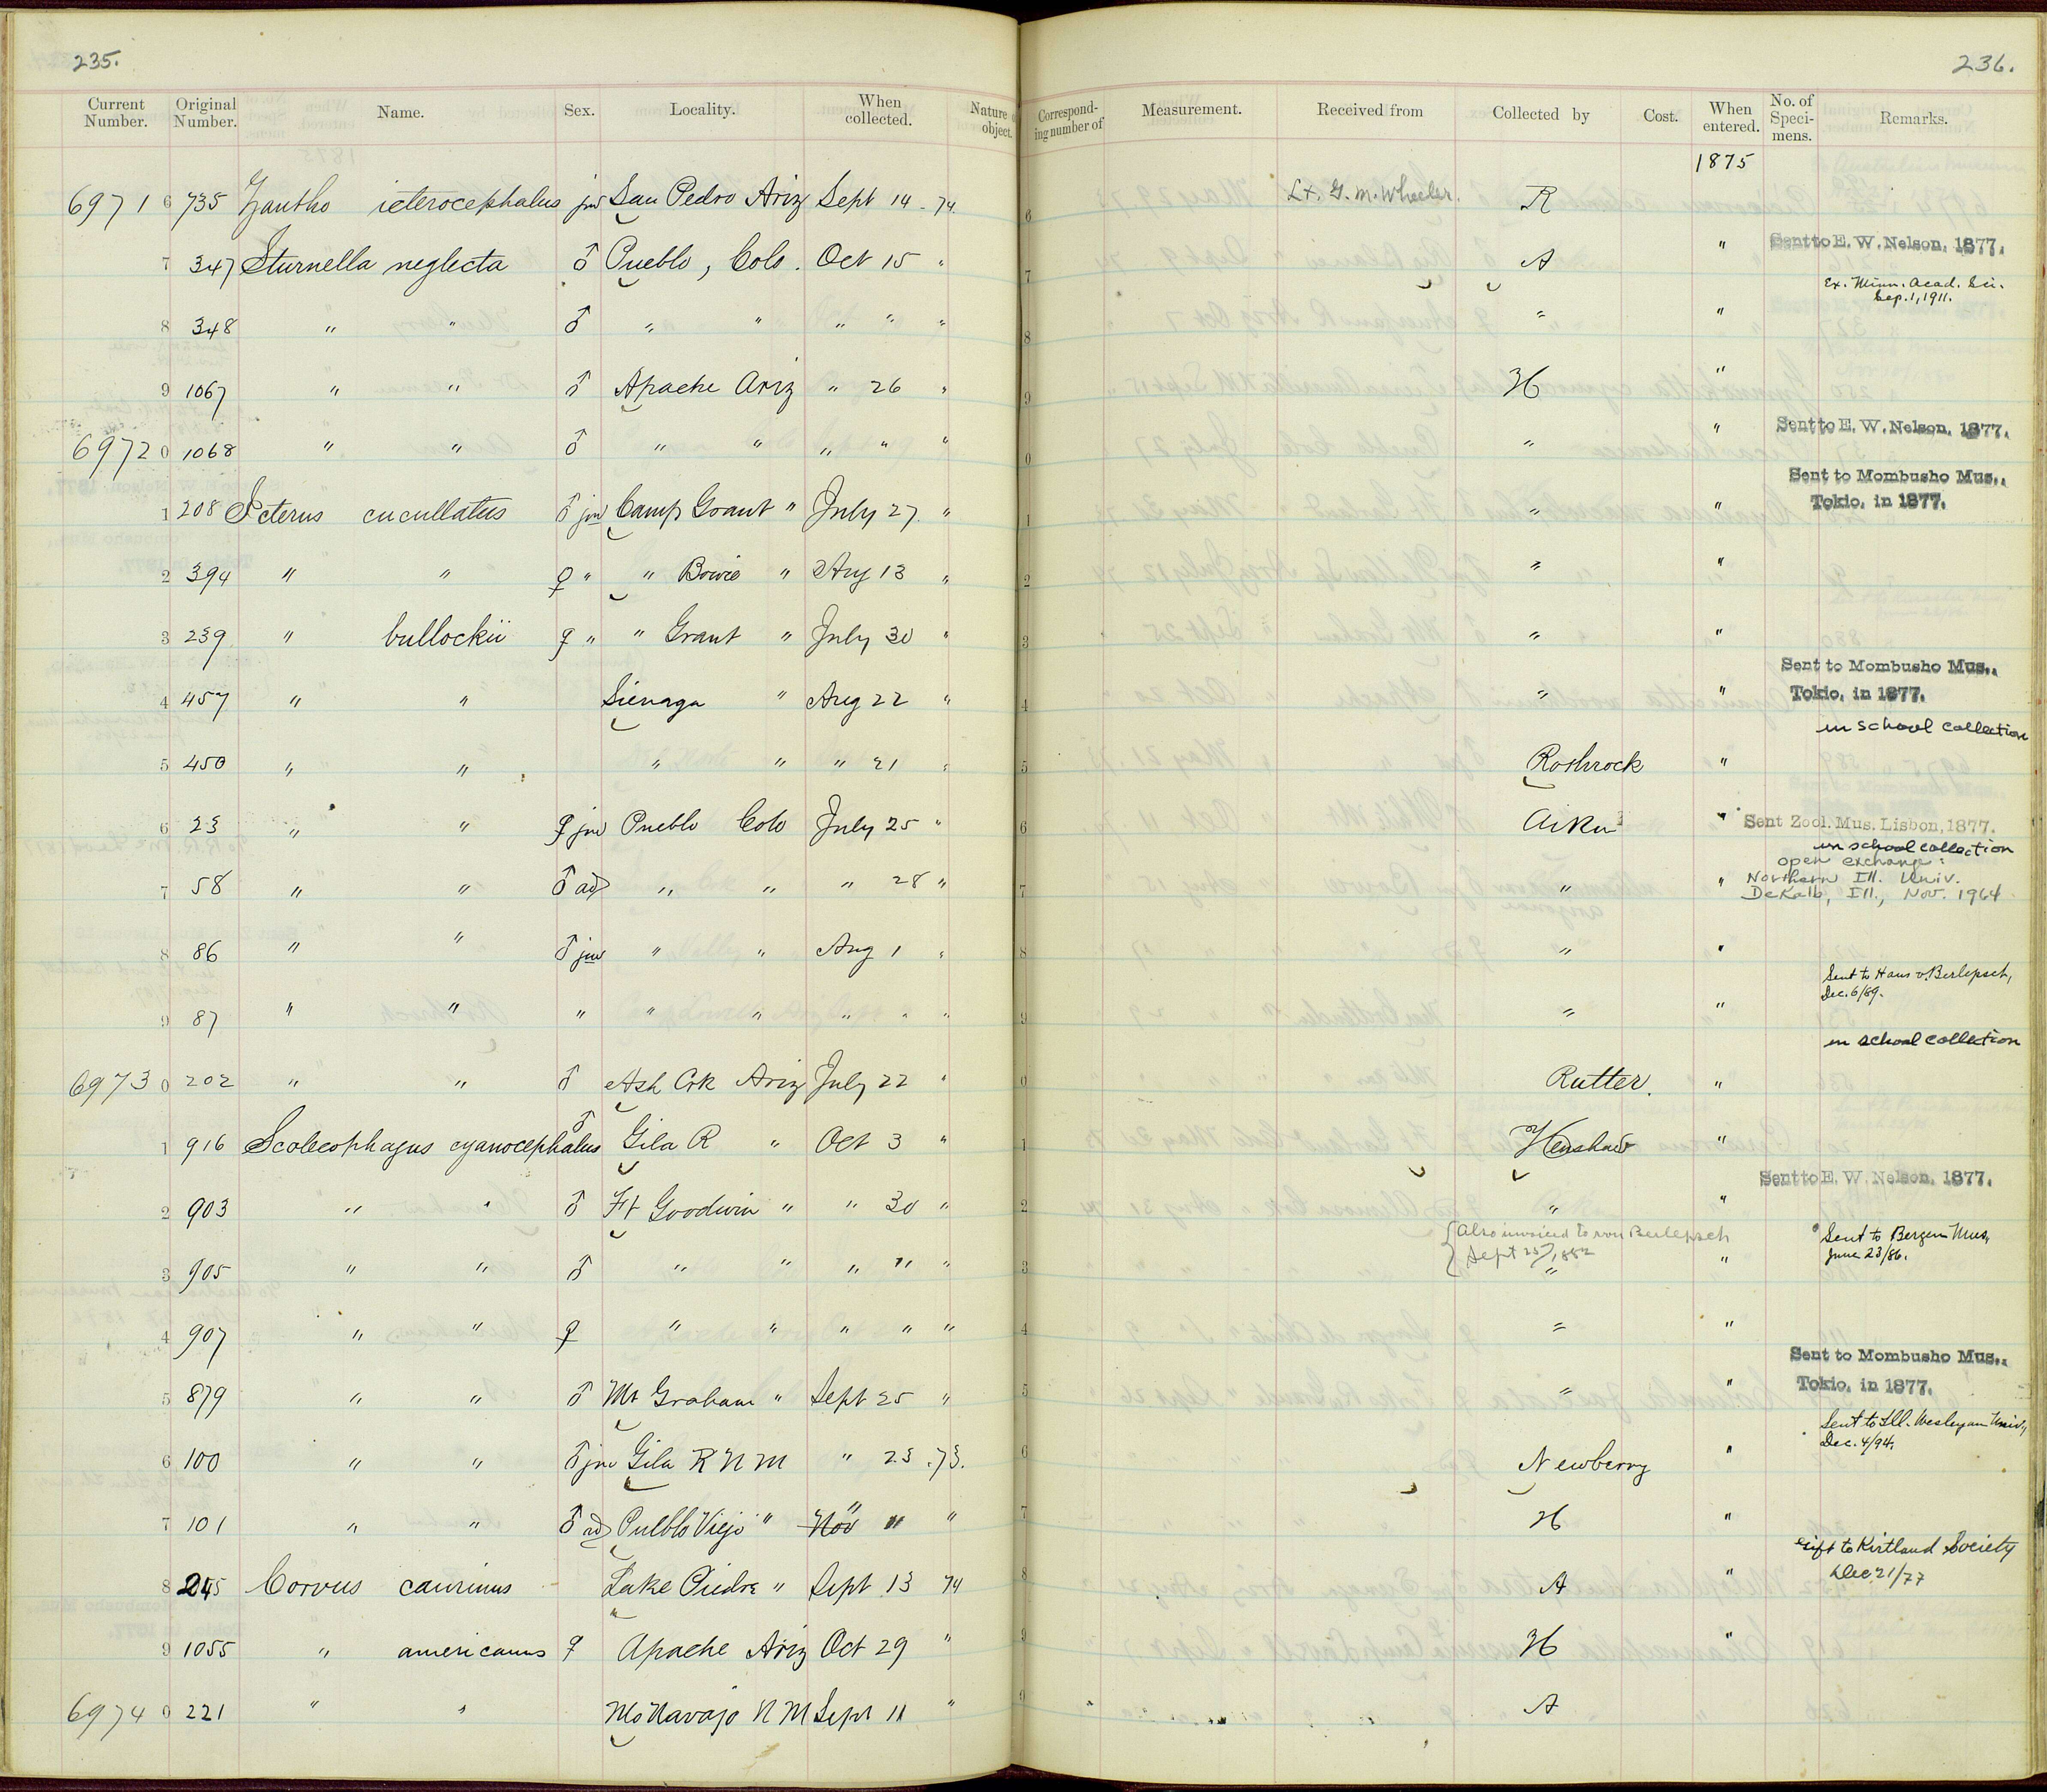 235.
236.
Current Number. Original Number. Name. Sex. Locality. When collected. Nature object. Correspond-ing number of Measurement. Received from Collected by Cost. When entered. No. of Speci-mens. Remarks.
1875
6971 6 735 Zantho icterocephalus juv San Pedro Ariz Sept 14 - 74. 6 Lt. G. M. Wheeler. R
7 347 Sturnella neglecta ♂ Pueblo, Colo. Oct 15 " 7 A " Sent to E. W. Nelson, 1877.
Ex. Minn. Acad. Sci.
Sep. 1, 1911.
8 348 " " ♂ " " " " " 8 " "
9 1067 " " ♂ Apache Ariz " 26 " 9 H "
6972 0 1068 " " ♂ " " " " " 0 " " Sent to E. W. Nelson, 1877.
Sent to Mombusho Mus.,
1 208 Icterus cucullatus ♂ juv Camp Grant " July 27 " 1 " " Tokio, in 1877.
2 394 " " ♀ " " Bowie " Aug 13 " 2 " "
3 239 " bullockii ♀ " " Grant " July 30 " 3 " "
Sent to Mombusho Mus.,
4 457 " " Sienaga " Aug 22 " 4 " " Tokio, in 1877.
in school collection
5 450 " " " " " 21 " 5 Rothrock "
6 23 " " ♀ juv Pueblo Colo July 25 " 6 Aiken " Sent Zool. Mus. Lisbon, 1877.
in school collection
open exchange:
7 58 " " ♂ ad " " " 28 " 7 " " Northern Ill. Univ.
DeKalb, Ill., Nov. 1964
8 86 " " ♂ juv " " Aug 1 " 8 " "
Sent to Hans v. Berlepsch,
Dec. 6/89.
9 87 " " " " " " " " 9 " "
in school collection
6973 0 202 " " ♂ Ash Crk Ariz July 22 " 0 Rutter. "
1 916 Scolecophagus cyanocephalus ♂ Gila R " Oct 3 " 1 Henshaw "
Sent to E. W. Nelson, 1877.
2 903 " " ♂ Ft Goodwin " " 30 " 2 " "
{Also invoiced to von Berlepsch
Sept 25/1882
Sent to Bergen Mus,
June 23/86.
3 905 " " ♂ " " " " " 3 " "
4 907 " " ♀ " " " " " 4 " "
Sent to Mombusho Mus.,
5 879 " " ♂ Mt Graham " Sept 25 " 5 " " Tokio, in 1877.
Sent to Ill. Wesleyan Univ.,
Dec. 4/94,
6 100 " " ♂ juv Gila R N M " 23 .73. 6 Newberry "
7 101 " " ♂ ad Pueblo Viejo " Nov " " " 7 H "
Gift to Kirtland Society
Dec 21/77
8 245 Corvus caurinus Lake Piedra " Sept 13 74 8 A "
9 1055 " americanus ♀ Apache Ariz Oct 29 " 9 H "
6974 0 221 " " Navajo N M Sept 11 " 0 A